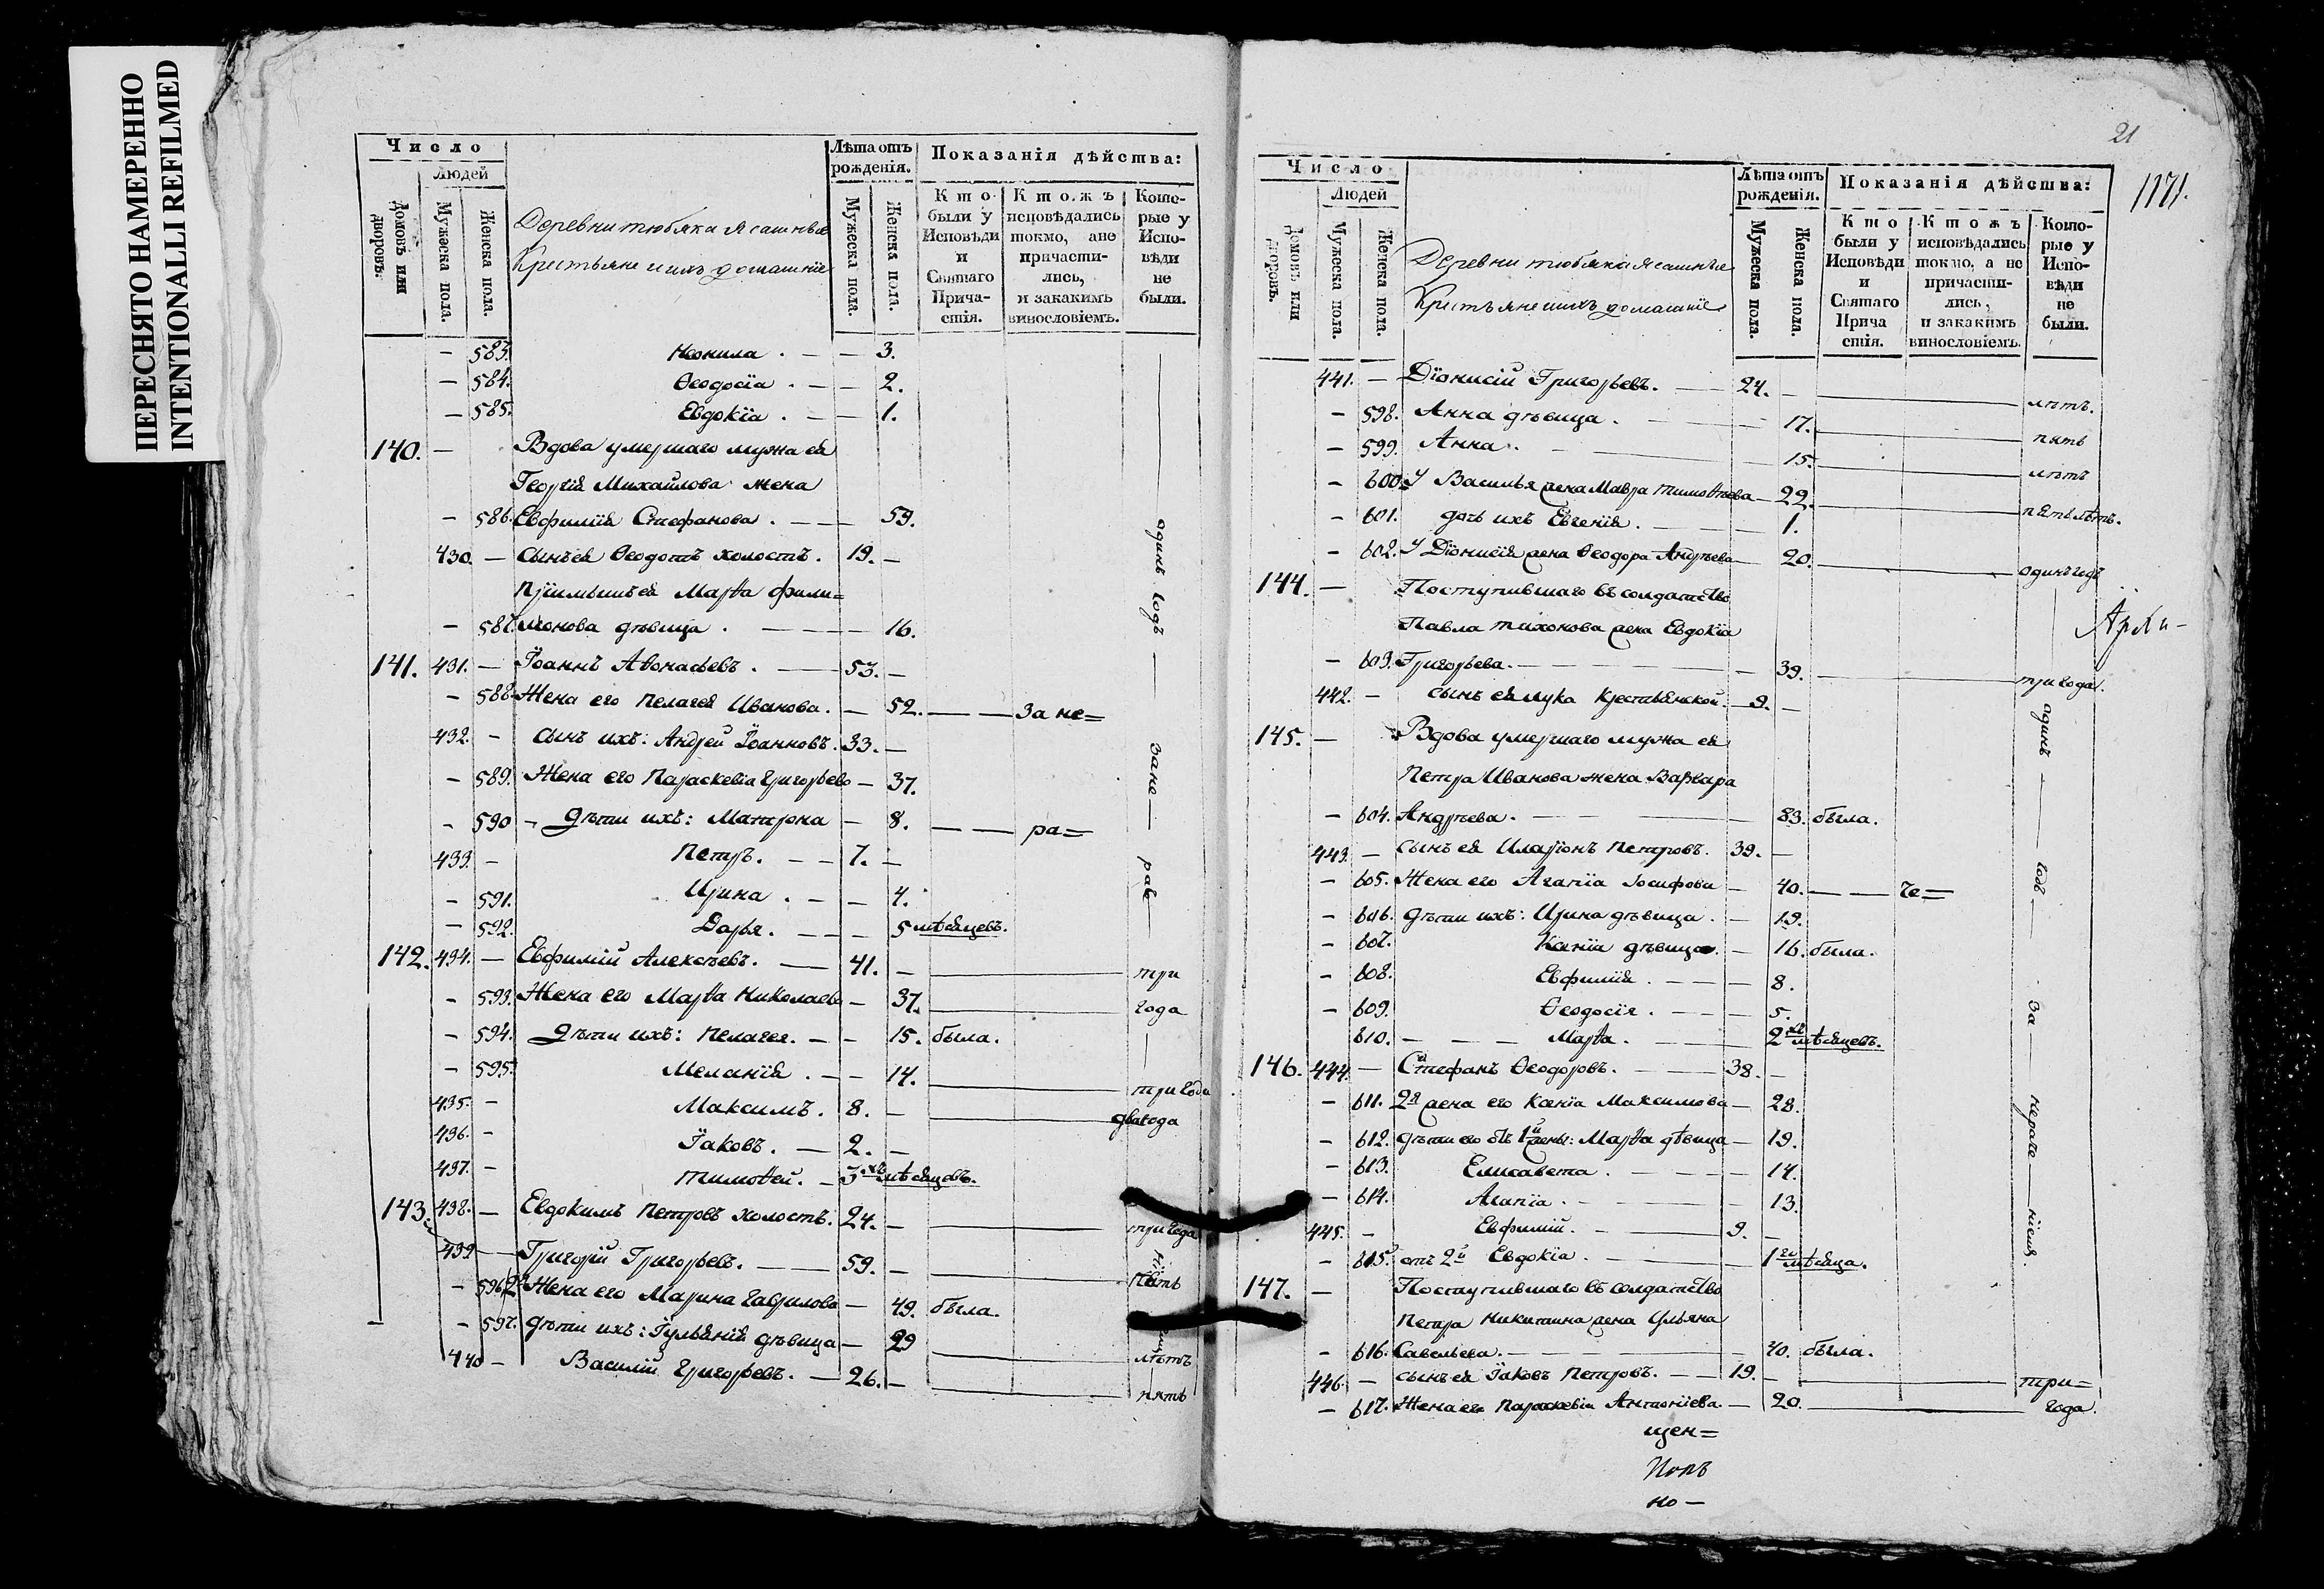 ПЕРЕСНЯТО НАМЕРЕННО
INTENTIONALLI REFILMED
Число
Людей
Домовъ или дворовъ.
Мужеска пола.
Женска пола.
Деревни тюбяка Ясашные
Крестьяне и ихъ домашніе
Лѣта отъ рожденія.
Мужеска пола.
Женска пола.
Показанія дѣйства:
Кто были у Исповѣди и Святаго Причастія.
Ктожъ исповѣдались токмо, а не причастились, и закакимъ винословіемъ.
Которые у Исповѣди не были.
– 583. Неонила . – – 3.
– 584. Ѳеодосіа . – – 2.
– 585. Евдокіа . – – 1.
140. – Вдова умершаго мужа ея
Георгія Михайлова жена
– 586. Евфимія Стефанова . – – 59.
430. – Сынъ ея Ѳеодотъ холостъ . 19. –
Приимышъ ея Марѳа фили=
– 587. монова дѣвица . – – 16.
141. 431. – Іоаннъ Аѳонасьевъ . – 53. –
– 588. Жена его Пелагея Иванова . – 52. – – За не=
432. – сынъ ихъ: Андрей Іоанновъ . 33. –
– 589. Жена его Параскевіа Григорьева – 37.
– 590 – Дѣти ихъ: Матрона – 8. – – ра=
433. – Петръ. – – 7. –
– 591. Ирина . – – 4.
– 592. Дарья . – – 5 мѣсяцевъ.
один годъ — Зане — раѣ
142. 434. – Евфимій Алексѣевъ. – 41. – три
– 593. Жена его Марѳа Николаева – 37. года
– 594. Дѣти ихъ: Пелагея. – – 15. была.
– 595. Меланія . – – 14. три года
435. – Максимъ . 8. – два года
436. – Іаковъ. – 2. –
437. – Тимоѳей. – 3хъ мѣсяцевъ.
143. 438. – Евдокимъ Петровъ холостъ. 24. – три года
439 – Григорій Григорьевъ. – 59. – пять
– 596. 2я Жена его Марина Гаврилова – 49. была.
– 597. Дѣти ихъ: Іуліянія дѣвица – 29 лѣтъ
440 – Василій Григорьевъ. – 26. – пять
21
1171.
Число
Людей
Домовъ или дворовъ.
Мужеска пола.
Женска пола.
Деревни тюбяка Ясашные
Крестьяне и ихъ домашніе
Лѣта отъ рожденія.
Мужеска пола.
Женска пола.
Показанія дѣйства:
Кто были у Исповѣди и Святаго Прича стія.
Ктожъ исповѣдались токмо, а не причастились, и закакимъ винословіемъ.
Которые у Исповѣди не были.
441. – Діонисій Григорьевъ. – 24. – лѣтъ.
– 598. Анна дѣвица . – 17. пять
– 599. Анна . – 15. лѣтъ
– 600. У Василья жена Мавра Тимоѳеева – 22. пять лѣтъ.
– 601. дочь ихъ Евгенія . – 1.
– 602. У Діонисія жена Ѳеодора Андрѣева – 20. один годъ
144. – Поступившаго въ солдатство
Павла тихонова жена Евдокіа
Архи-
– 603. Григорьева. – – 39. три года.
442. – сынъ ея лука Крестьянской. – 9. –
145. – Вдова умершаго мужа ея
Петра Иванова жена Варвара
– 604. Андрѣева . – – 83. была.
443. – сынъ ея Иларіонъ Петровъ. 39. –
– 605. Жена его Агапіа Іосифова – 40. – – че=
– 606. Дѣти ихъ: Ирина дѣвица . – 19.
– 607. Ксенія дѣвица. – 16. была.
– 608. Евфимія . – – 8.
– 609. Ѳеодосія . – – 5.
610. – – – Марѳа . – 2хъ мѣсяцевъ.
146. 444. – Стефанъ Ѳеодоровъ. – 38. –
– 611. 2я жена его Ксенія Максимова – 28.
– 612. Дѣти его отъ 1й жены: Марѳа дѣвица – 19.
– 613. Елисавета . – – 14.
– 614. Агапіа . – – 13.
445. – Евфимій. – 9. –
– 615. отъ 2й Евдокіа . – 1го мѣсяца.
один — годъ — За — нераче — ніемъ.
147. – Поступившаго въ солдатство
Петра Никитина жена Ульяна
– 616. Савельева. – – 40. была.
446. – сынъ ея Іаковъ Петровъ. – 19. – три=
– 617. Жена его Параскевіа Антоніева. – 20. года.
щен=
Попъ
но –